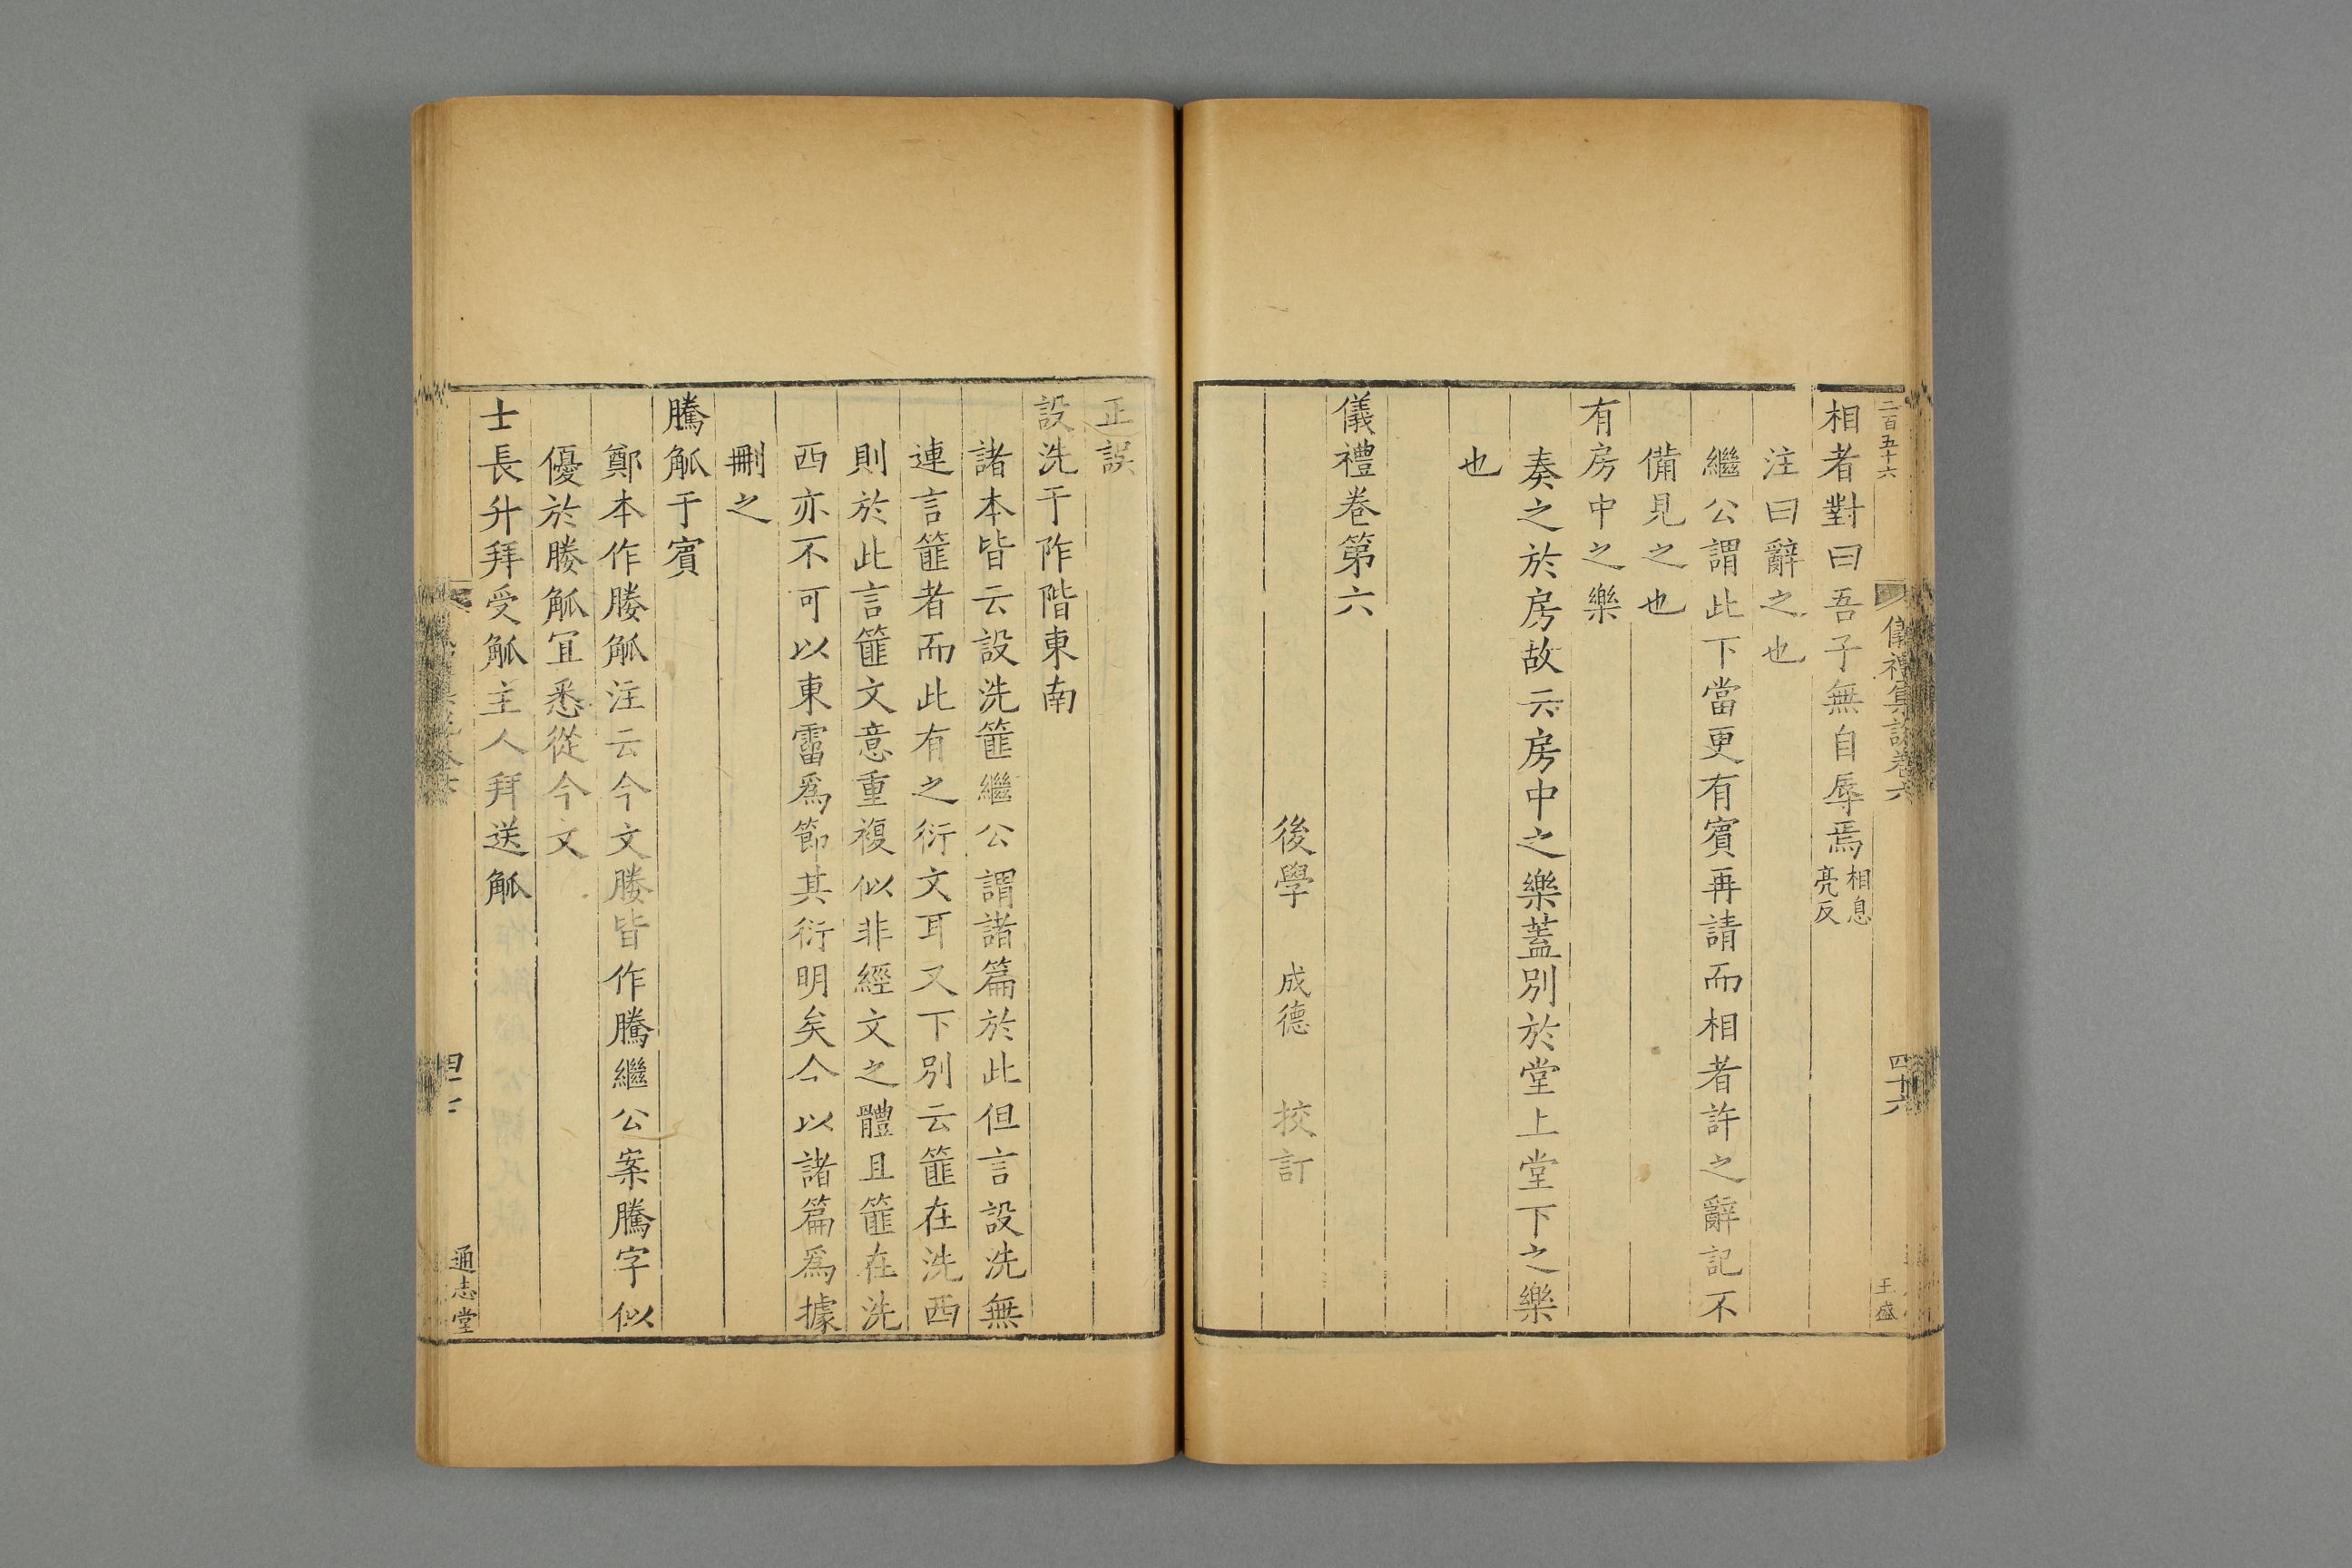 二百五十六
儀禮集說卷六
四十六
王盛
相者對曰吾子無自辱焉相息亮反
注曰辭之也
繼公謂此下當更有賓再請而相者許之辭記不
備見之也
有房中之樂
奏之於房故云房中之樂蓋別於堂上堂下之樂
也
儀禮卷第六
後學 成德 挍訂
正誤
設洗于阼階東南
諸本皆云設洗篚繼公謂諸篇於此但言設洗無
連言篚者而此有之衍文耳又下別云篚在洗西
則於此言篚文意重複似非經文之體且篚在洗
西亦不可以東霤爲節其衍明矣今以諸篇爲據
刪之
騰觚于賓
鄭本作媵觚注云今文媵皆作騰繼公案騰字似
優於媵觚宜悉從今文
士長升拜受觚主人拜送觚
通志堂